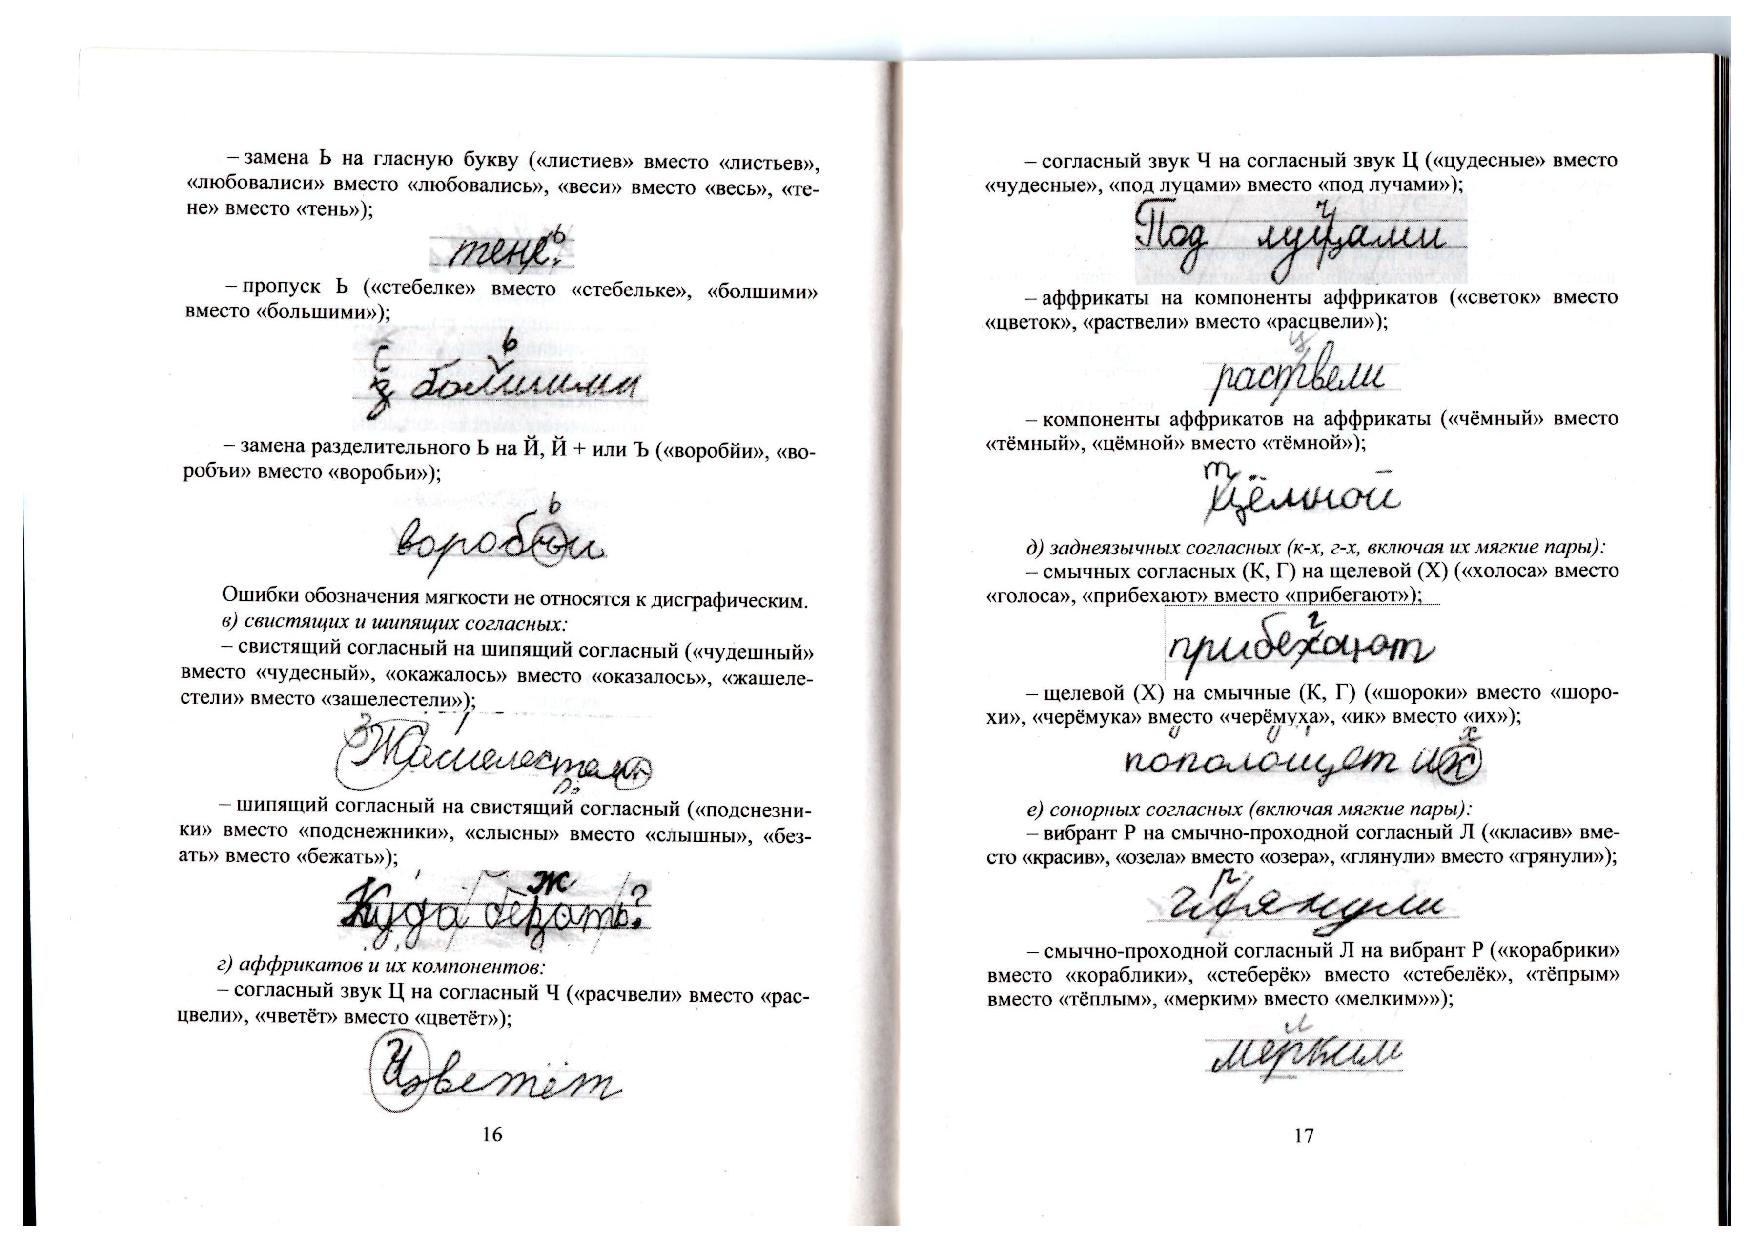 – замена Ь на гласную букву («листиев» вместо «листьев»,
«любовалиси» вместо «любовались», «веси» вместо «весь», «те-
не» вместо «тень»);
ь
тене.
– пропуск Ь («стебелке» вместо «стебельке», «болшими»
вместо «большими»);
с ь
з болшими
– замена разделительного Ь на Й, Й + или Ъ («воробйи», «во-
робъи» вместо «воробьи»);
ь
воробйи
Ошибки обозначения мягкости не относятся к дисграфическим.
в) свистящих и шипящих согласных:
– свистящий согласный на шипящий согласный («чудешный»
вместо «чудесный», «окажалось» вместо «оказалось», «жашеле-
стели» вместо «зашелестели»);
З
Жашелестели
– шипящий согласный на свистящий согласный («подснезни-
ки» вместо «подснежники», «слысны» вместо «слышны», «без-
ать» вместо «бежать»);
ж
Куда безать?
г) аффрикатов и их компонентов:
– согласный звук Ц на согласный Ч («расчвели» вместо «рас-
цвели», «чветёт» вместо «цветёт»);
Цветёт
16
– согласный звук Ч на согласный звук Ц («цудесные» вместо
«чудесные», «под луцами» вместо «под лучами»);
ч
Под луцами
– аффрикаты на компоненты аффрикатов («светок» вместо
«цветок», «раствели» вместо «расцвели»);
ц
раствели
– компоненты аффрикатов на аффрикаты («чёмный» вместо
«тёмный», «цёмной» вместо «тёмной»);
т
Цёмной
д) заднеязычных согласных (к-х, г-х, включая их мягкие пары):
– смычных согласных (К, Г) на щелевой (Х) («холоса» вместо
«голоса», «прибехают» вместо «прибегают»);
г
прибехают
– щелевой (Х) на смычные (К, Г) («шороки» вместо «шоро-
хи», «черёмука» вместо «черёмуха», «ик» вместо «их»);
х
пополощет ик
е) сонорных согласных (включая мягкие пары):
– вибрант Р на смычно-проходной согласный Л («класив» вме-
сто «красив», «озела» вместо «озера», «глянули» вместо «грянули»);
р
глянули
– смычно-проходной согласный Л на вибрант Р («корабрики»
вместо «кораблики», «стеберёк» вместо «стебелёк», «тёпрым»
вместо «тёплым», «мерким» вместо «мелким»»);
л
мерким
17